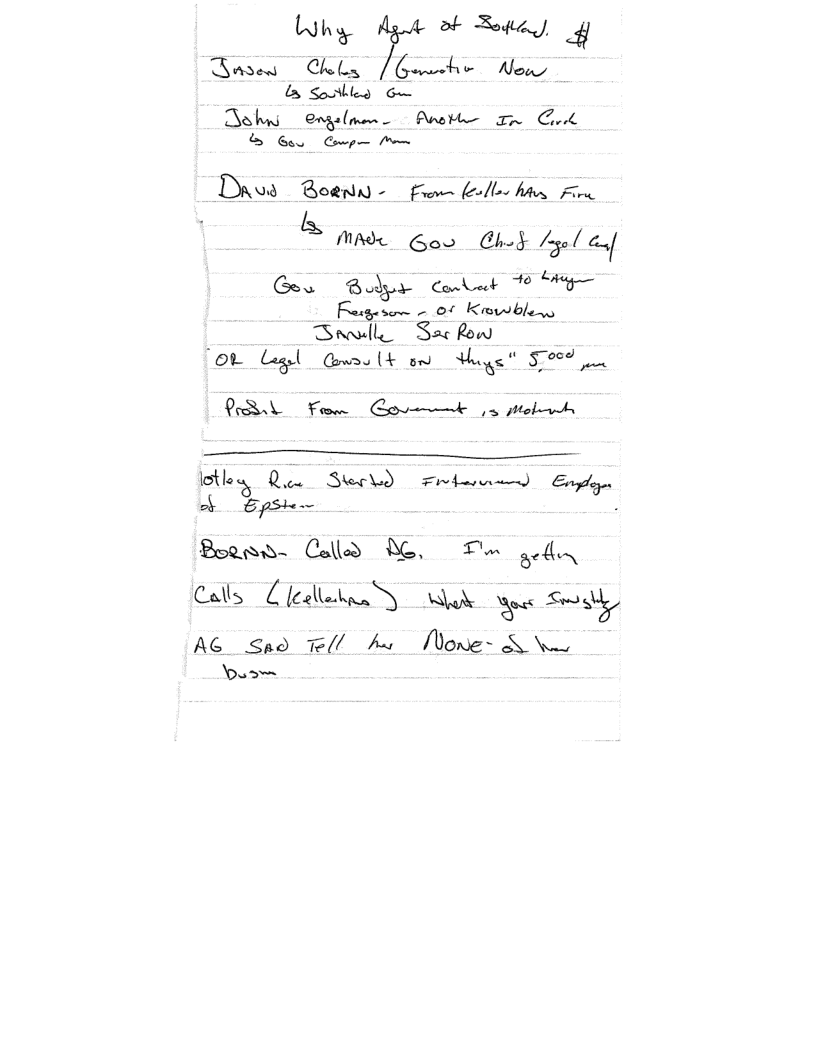 Why Agent at Southland. $
JASON Charles / Generation Now
↳ Southland Gam
John engelman - Another In Circl
↳ Gov Campn Man
DAVID BORNN - From KellerhAus Firm
↳ MAde Gov Chief legal
Gov Budget Contract to
Fergeson - or Krowblew
JANelle SarRow
OR Legal Consult on thngs" 5,000
Profit From Government is
otley Rice Started Interviewed Employe
of EpSten
BORNN - Called AG. I'm gettn
Calls (Kellerhas) What your
AG SAD Tell her NONE - of her
busn